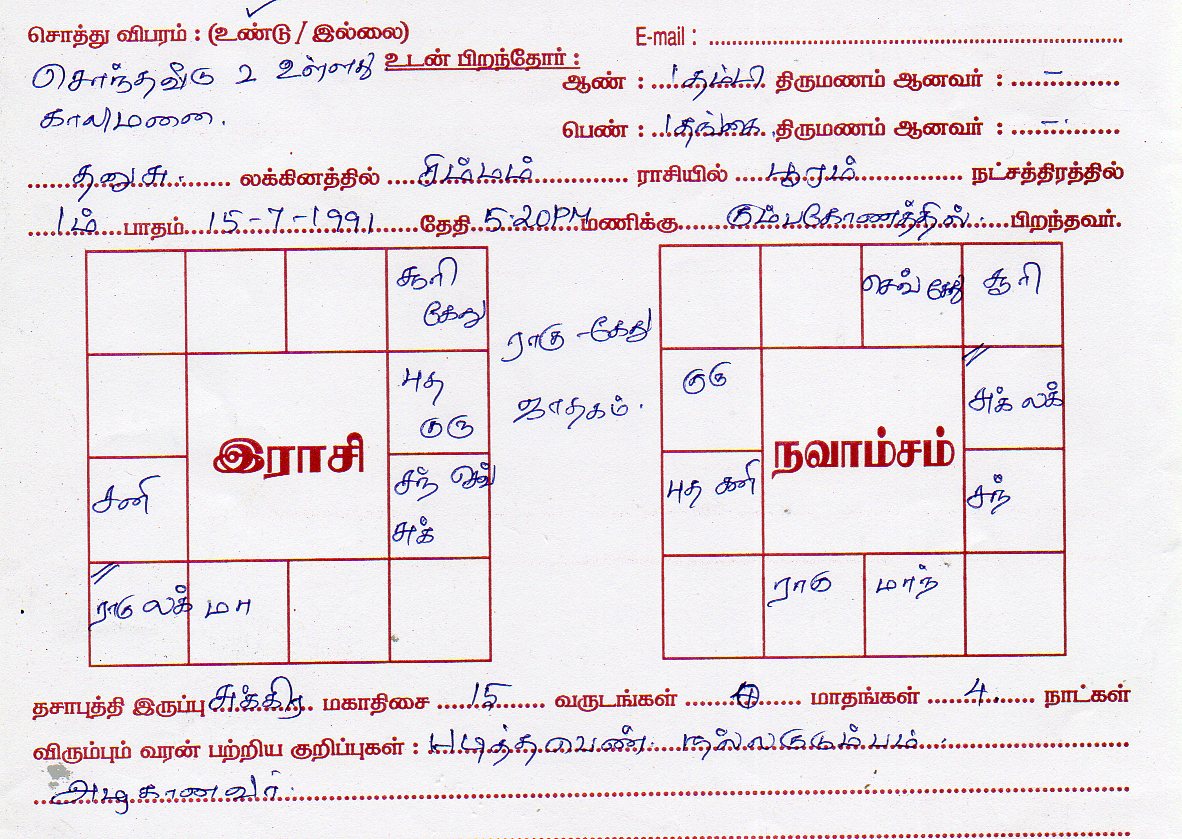 சொத்து விபரம் : (உண்டு / இல்லை) E-mail : ........
சொந்தவீடு 2 உள்ளது உடன் பிறந்தோர் : ஆண் : 1 தம்பி திருமணம் ஆனவர் : –
காலிமனை. பெண் : 1 தங்கை திருமணம் ஆனவர் : –
தனுசு. லக்கினத்தில் சிம்மம் ராசியில் பூரம் நட்சத்திரத்தில்
1ம் பாதம் 15-7-1991 தேதி 5.20PM மணிக்கு கும்பகோணத்தில். பிறந்தவர்.
சூரி
கேது
புத
குரு
இராசி
சனி
சந் செவ்
சுக்
ராகு லக் மா
ராகு - கேது
ஜாதகம்.
செவ் கேது சூரி
குரு
சுக் லக்
நவாம்சம்
புத சனி
சந்
ராகு மாந்
தசாபுத்தி இருப்பு சுக்கிர மகாதிசை 15 வருடங்கள் மாதங்கள் 4 நாட்கள்
விரும்பும் வரன் பற்றிய குறிப்புகள் : படித்தபெண். நல்லகுடும்பம்.
அழகானவர்.